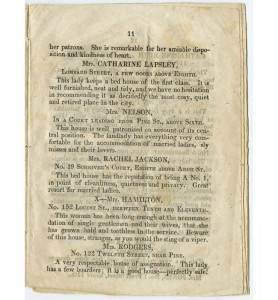 11
her patrons. She is remarkable for her amiable dispo-
sition and kindness of heart.
Mrs. CATHARINE LAPSLEY,
LOMBARD STREET, A FEW DOORS ABOVE EIGHTH.
This lady keeps a bed house of the first class. It is
well furnished, neat and tidy, and we have no hesitation
in recommending it as decidedly the most cosy, quiet
and retired place in the city.
Mrs. NELSON,
IN A COURT LEADING FROM PINE ST., ABOVE SIXTH.
This house is well patronised on account of its cen-
tral position. The landlady has everything very com-
fortable for the accommodation of married ladies, sly
misses and their lovers.
Mrs. RACHEL JACKSON,
No. 29 SCHRIVER'S COURT, EIGHTH ABOVE ASH ST.
This bed house has the reputation of being A No. 1,
in point of cleanliness, quietness and privacy. Great
resort for married ladies.
X—Mrs. HAMILTON,
No. 152 LOCUST ST., BETWEEN TENTH AND ELEVENTH.
This woman has been long enough at the accommo-
dation of single gentlemen and their wives, that she
has grown bald and toothless in the service. Beware
of this house, stranger, as you would the sting of a viper.
Mrs. RODGERS,
No. 122 TWELFTH STREET, NEAR PINE.
A very respectable house of assignation. This lady
has a few boarders. It is a good house—perfectly safe.